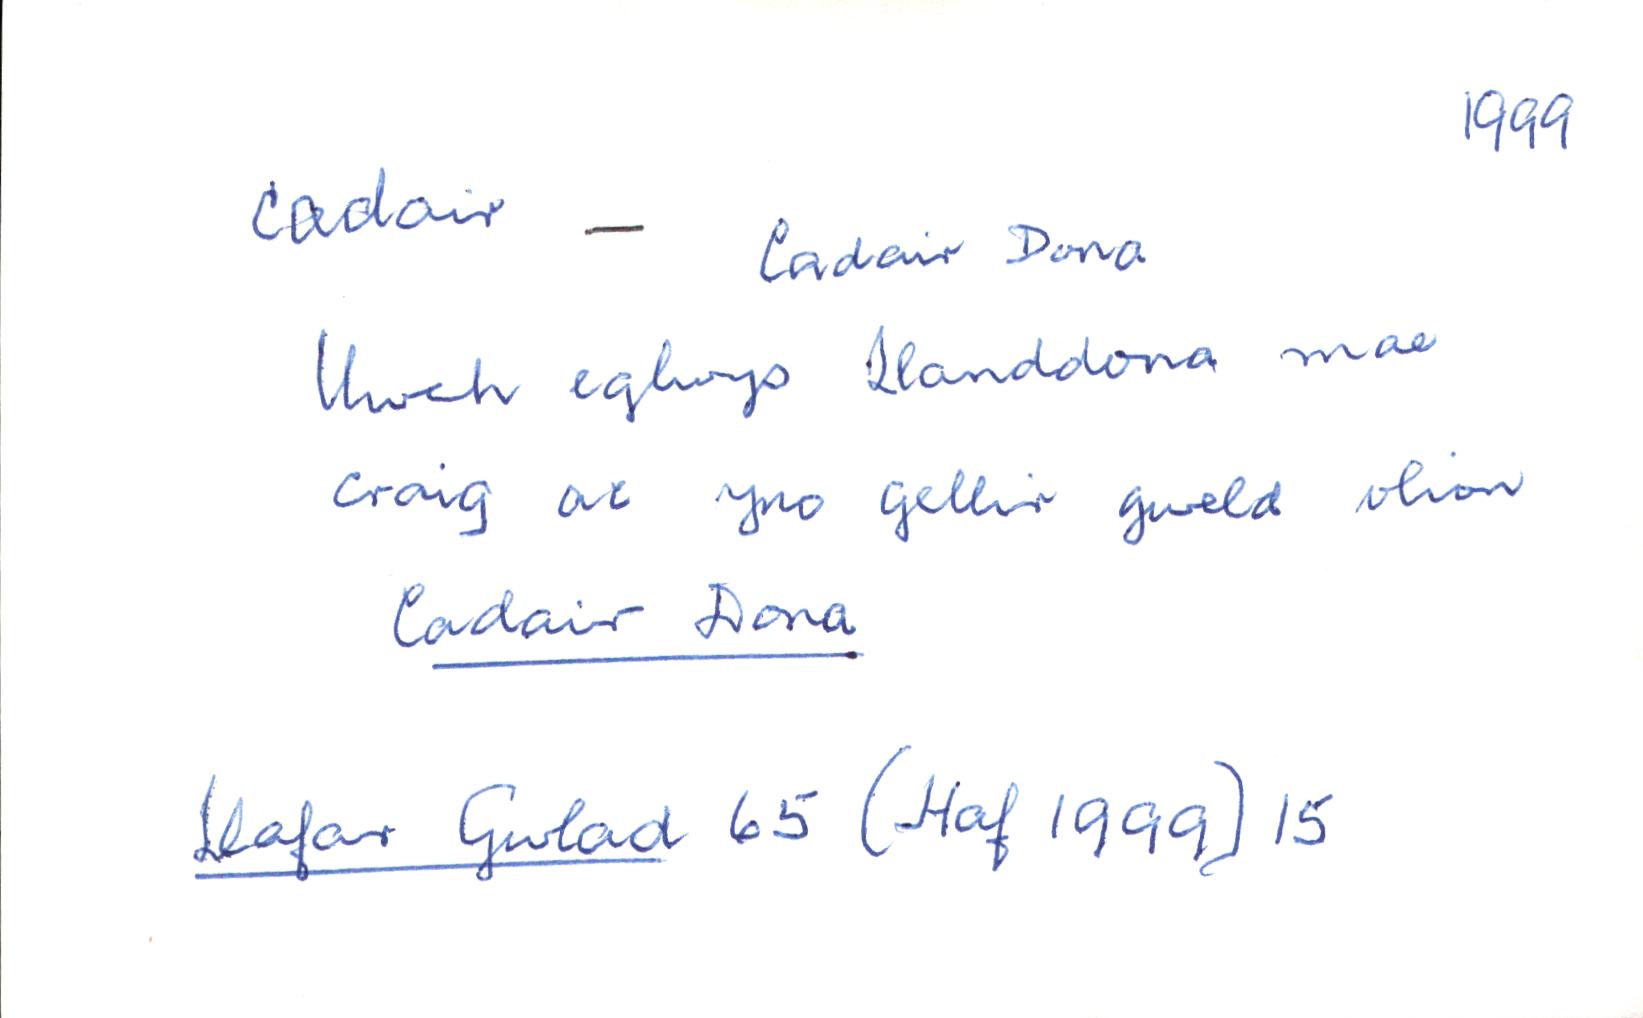 1999
cadair —
Cadair Dona
Uwch eglwys Llanddona mae
craig ac yno gellir gweld olion
Cadair Dona
Llafar Gwlad 65 (Haf 1999) 15